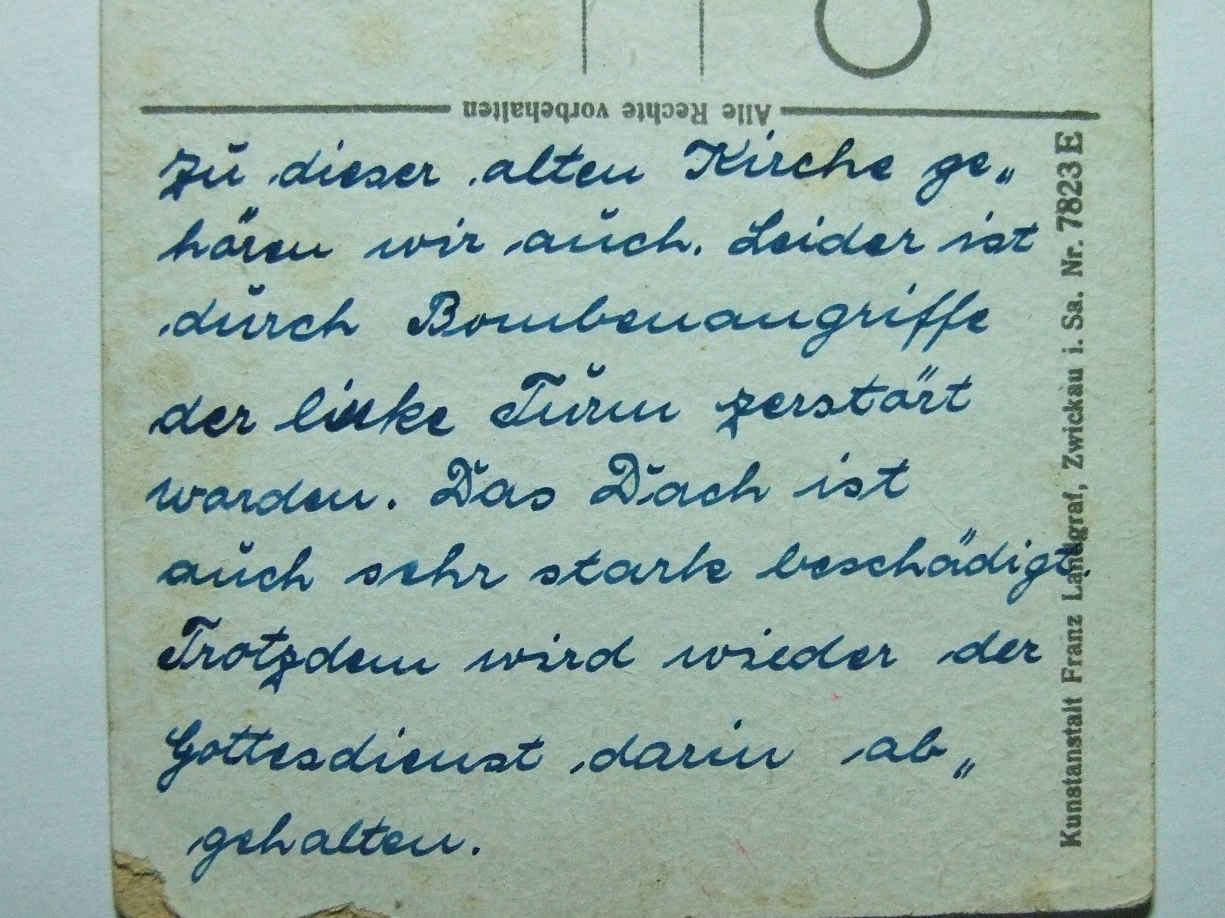 Alle Rechte vorbehalten
Zu dieser alten Kirche ge„
hören wir auch. Leider ist
durch Bombenangriffe
der linke Turm zerstört
worden. Das Dach ist
auch sehr stark beschädigt.
Trotzdem wird wieder der
Gottesdienst darin ab„
gehalten.
Kunstanstalt Franz Landgraf, Zwickau i. Sa. Nr. 7823 E